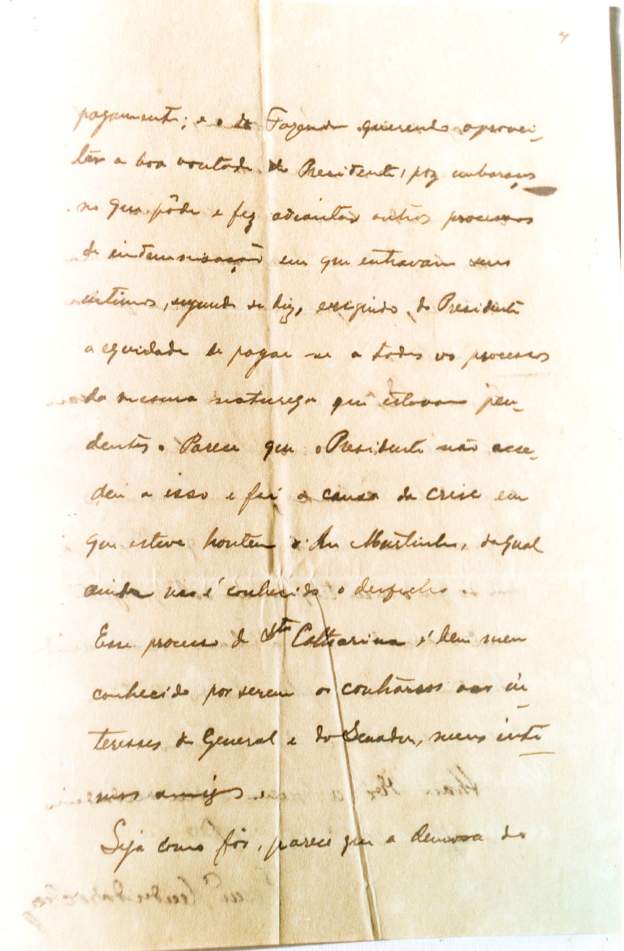 7
pagamento; e o da Fazenda querendo aprovei-
tar a boa vontade do Presidente, poz embaraços
no que pôde e fez adiantar outros processos
de indemnisação em que entravam seus
intimos, segundo se diz, exigindo do Presidente
a equidade de pagar-se a todos os processos
da mesma natureza que estavam pen-
dentes. Parece que o Presidente não acce-
deu a isso e foi a causa da crise em
que esteve hontem o Martinho, da qual
ainda não é conhecido o desfecho.
Esse processo de Sta Catharina é bem meu
conhecido por serem os contrarios aos in-
teresses do General e do Senador, meus inti
mos amigos
Seja como fôr, parece que a demora do